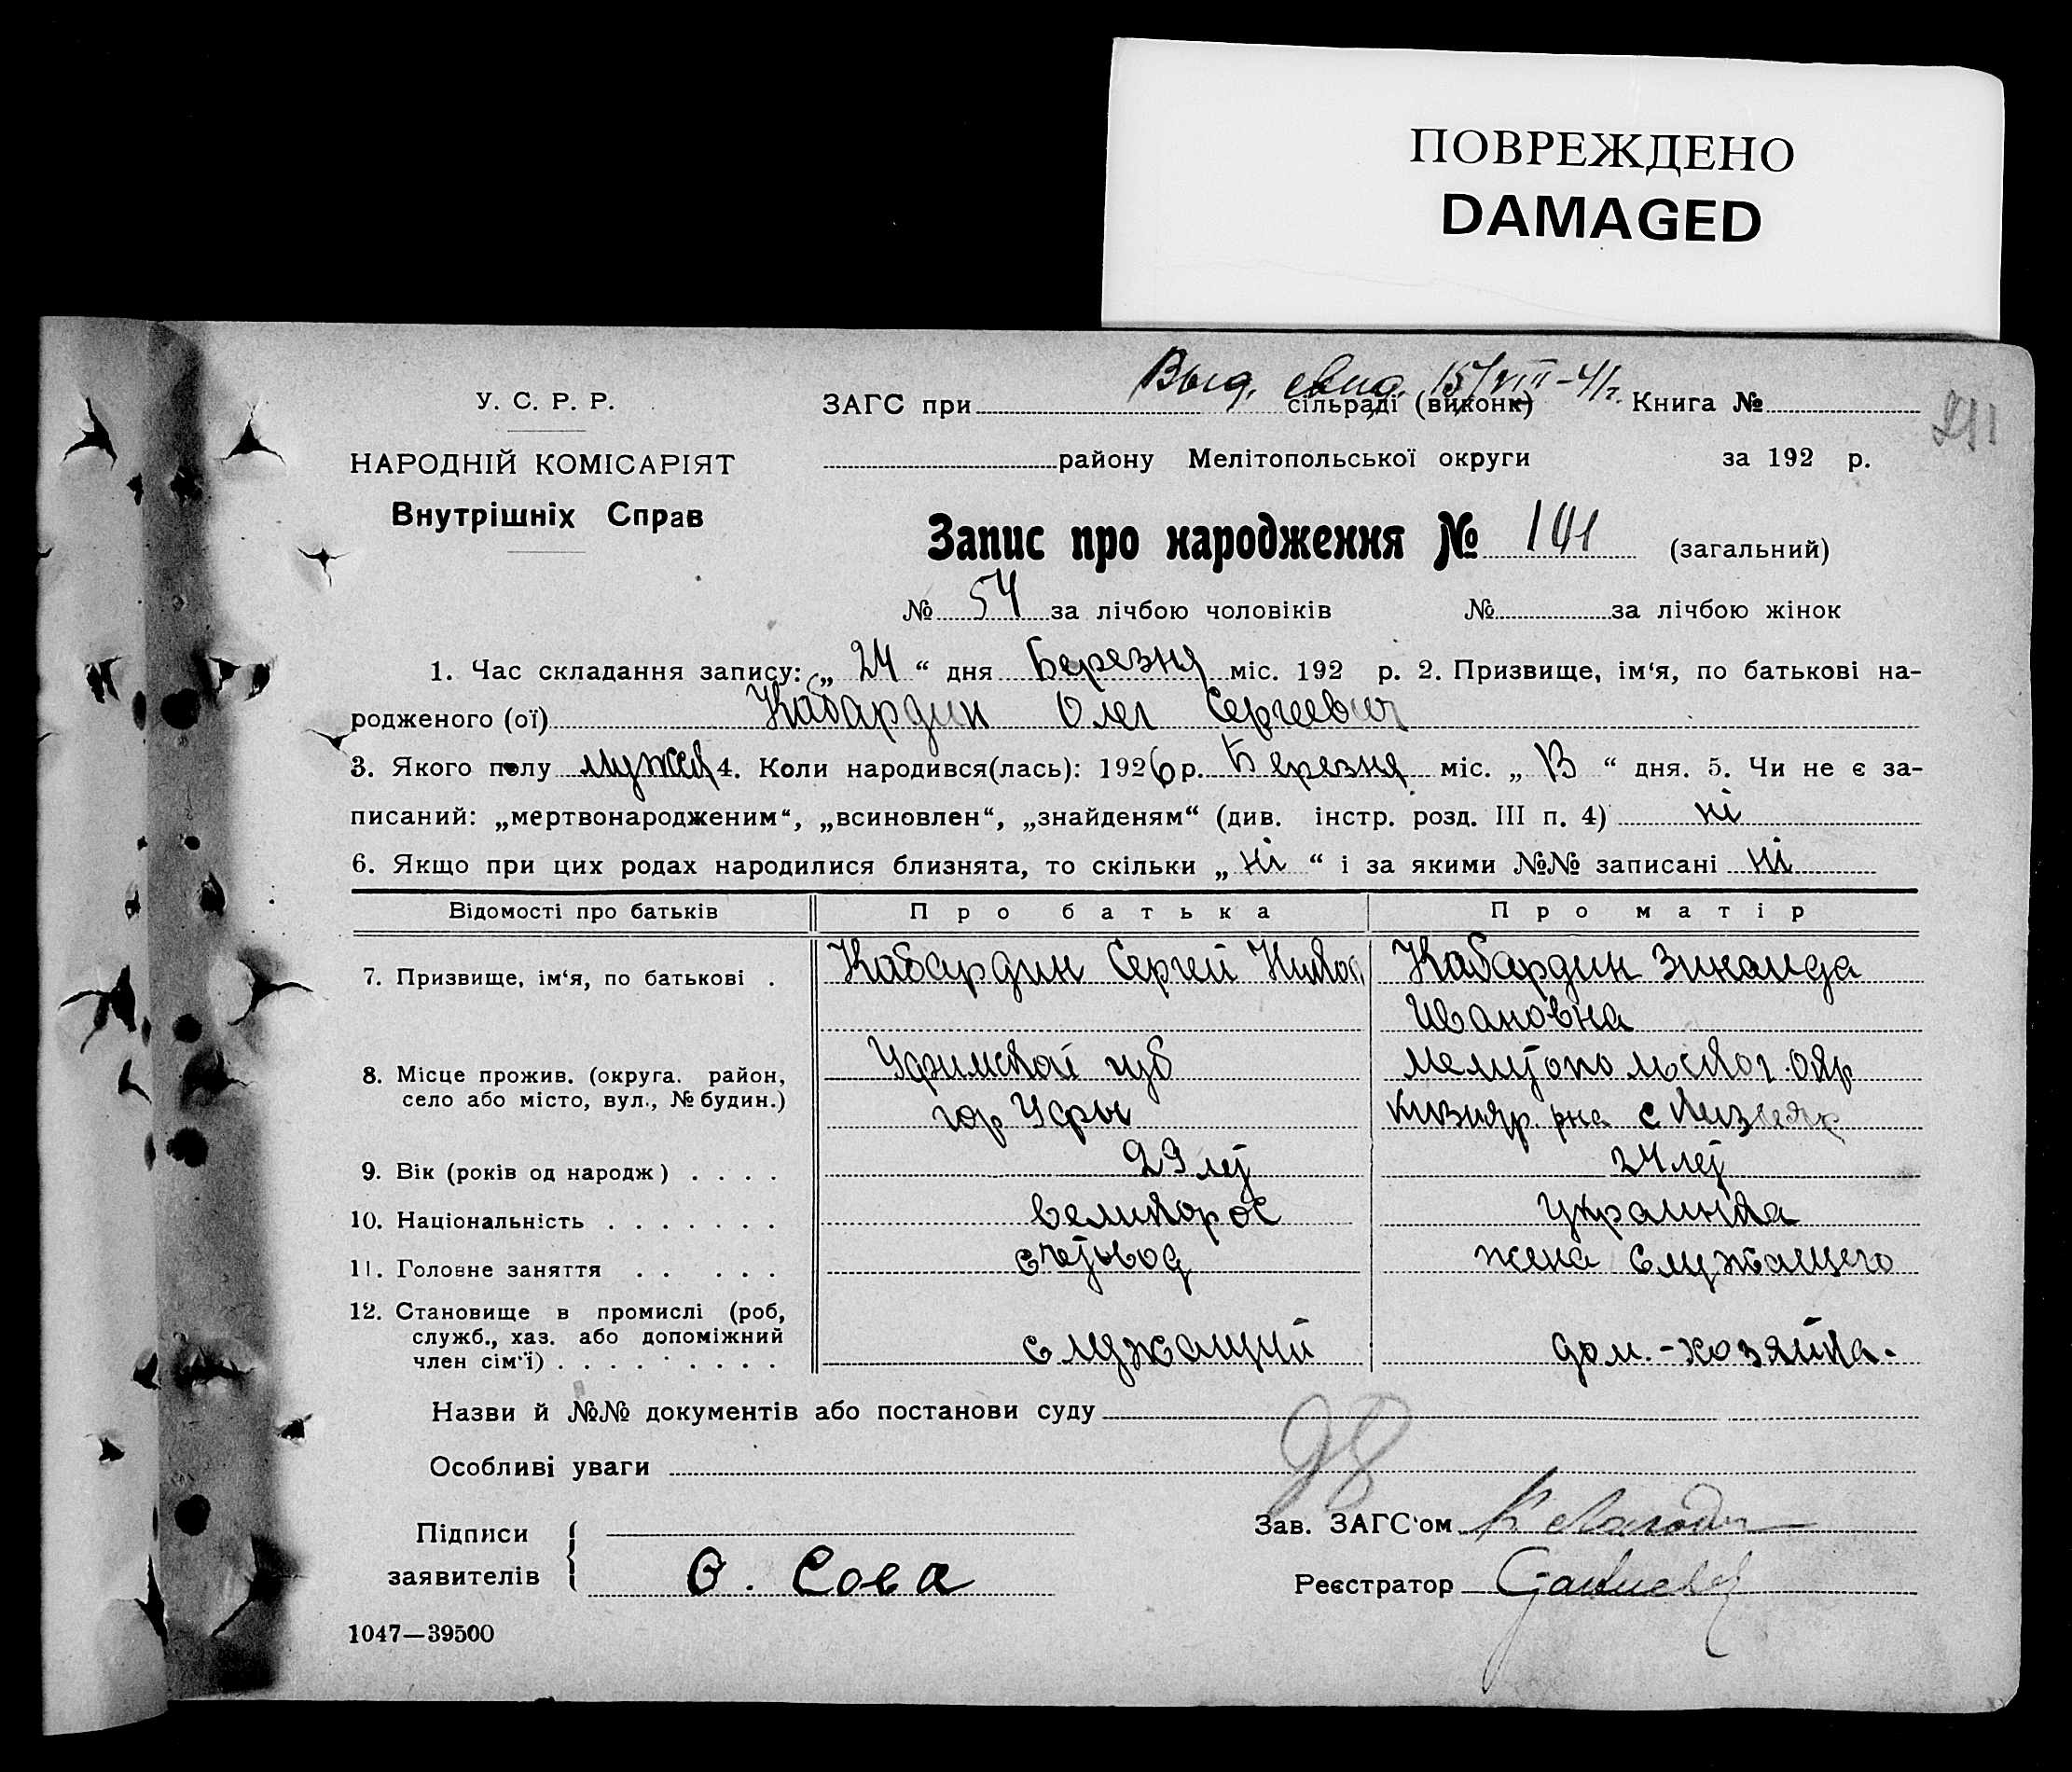 ПОВРЕЖДЕНО
DAMAGED
Выд. свид. 15/VIII-41г.
У. С. Р. Р.
ЗАГС при сільраді (виконк) Книга №
211
НАРОДНІЙ КОМІСАРІЯТ
району Мелітопольської округи за 192 р.
Внутрішніх Справ
Запис про народження № 141 (загальний)
№ 54 за лічбою чоловіків № за лічбою жінок
1. Час складання запису: „ 24 “ дня Березня міс. 192 р. 2. Призвище, ім‘я, по батькові на-
родженого (ої) Кабардин Олег Сергеевич
3. Якого полу мужск 4. Коли народився(лась): 1926 р. Березня міс. „ 13 “ дня. 5. Чи не є за-
писаний: „мертвонародженим“, „всиновлен“, „знайденям“ (див. інстр. розд. III п. 4) ні
6. Якщо при цих родах народилися близнята, то скільки „ ні “ і за якими №№ записані ні
Відомості про батьків Про батька Про матір
7. Призвище, ім‘я, по батькові . Кабардин Сергей Никол Кабардин Зинаида
Ивановна
8. Місце прожив. (округа. район, Уфимской губ Мелитопольског. Окр
село або місто, вул., № будин.) гор Уфы Кизияр. рна с Кизияр
9. Вік (років од народж) . . . . 29 лет 24 лет
10. Національність . . . . . . . великорос украинка
11. Головне заняття . . . . . счетовод жена служащего
12. Становище в промислі (роб,
служб., хаз. або допоміжний
член сім‘ї) . . . . . . . . . служащий дом.-хозяйка.
Назви й №№ документів або постанови суду
98
Особливі уваги
Підписи
Зав. ЗАГС‘ом
заявителів О. Сова
Реєстратор
1047—39500